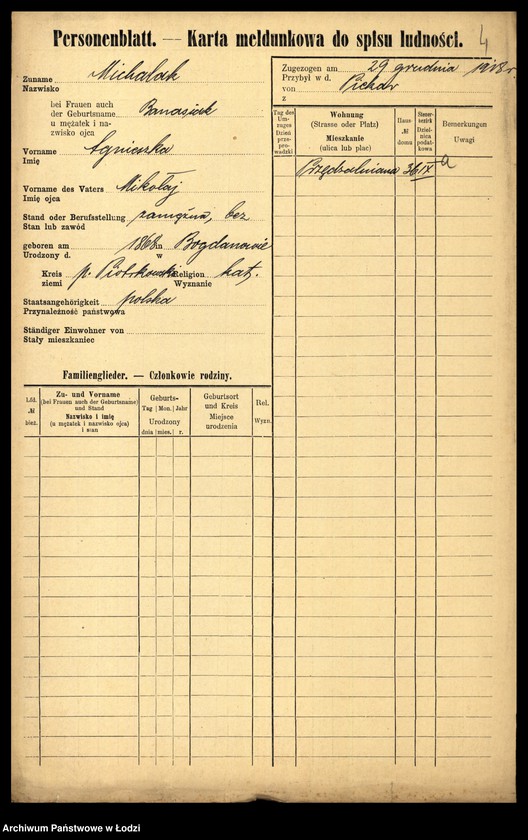 Personenblatt. — Karta meldunkowa do spisu ludności.
4
Zuname Michalak
Nazwisko
bei Frauen auch
der Geburtsname Banasiak
u mężatek i na-
zwisko ojca
Vorname Agnieszka
Imię
Vorname des Vaters Mikołaj
Imię ojca
Stand oder Berufsstellung zamężna, bez
Stan lub zawód
geboren am 1868 in Bogdanowie
Urodzony d.
Kreis p. Piotrkowski Religion kat.
ziemi Wyznanie
Staatsangehörigkeit polska
Przynależność państwowa
Ständiger Einwohner von
Stały mieszkaniec
Familienglieder. — Członkowie rodziny.
Lfd. № bież.
Zu- und Vorname
(bei Frauen auch der Geburtsname)
und Stand
Nazwisko i imię
(u mężatek i nazwisko ojca)
i stan
Geburts-
Tag | Mon. | Jahr
Urodzony
dnia | mies. | r.
Geburtsort
und Kreis
Miejsce
urodzenia
Rel.
Wyzn.
Zugezogen am 29 grudnia 1918 r.
Przybył w d.
von
z
Tag des
Um-
zuges
Dzień
prze-
prowadzki
Wohnung
(Strasse oder Platz)
Mieszkanie
(ulica lub plac)
Haus
№
domu
Steuer-
bezirk
Dziel-
nica
podat-
kowa
Bemerkungen
Uwagi
Przędzalniana 36 IX a
Archiwum Państwowe w Łodzi